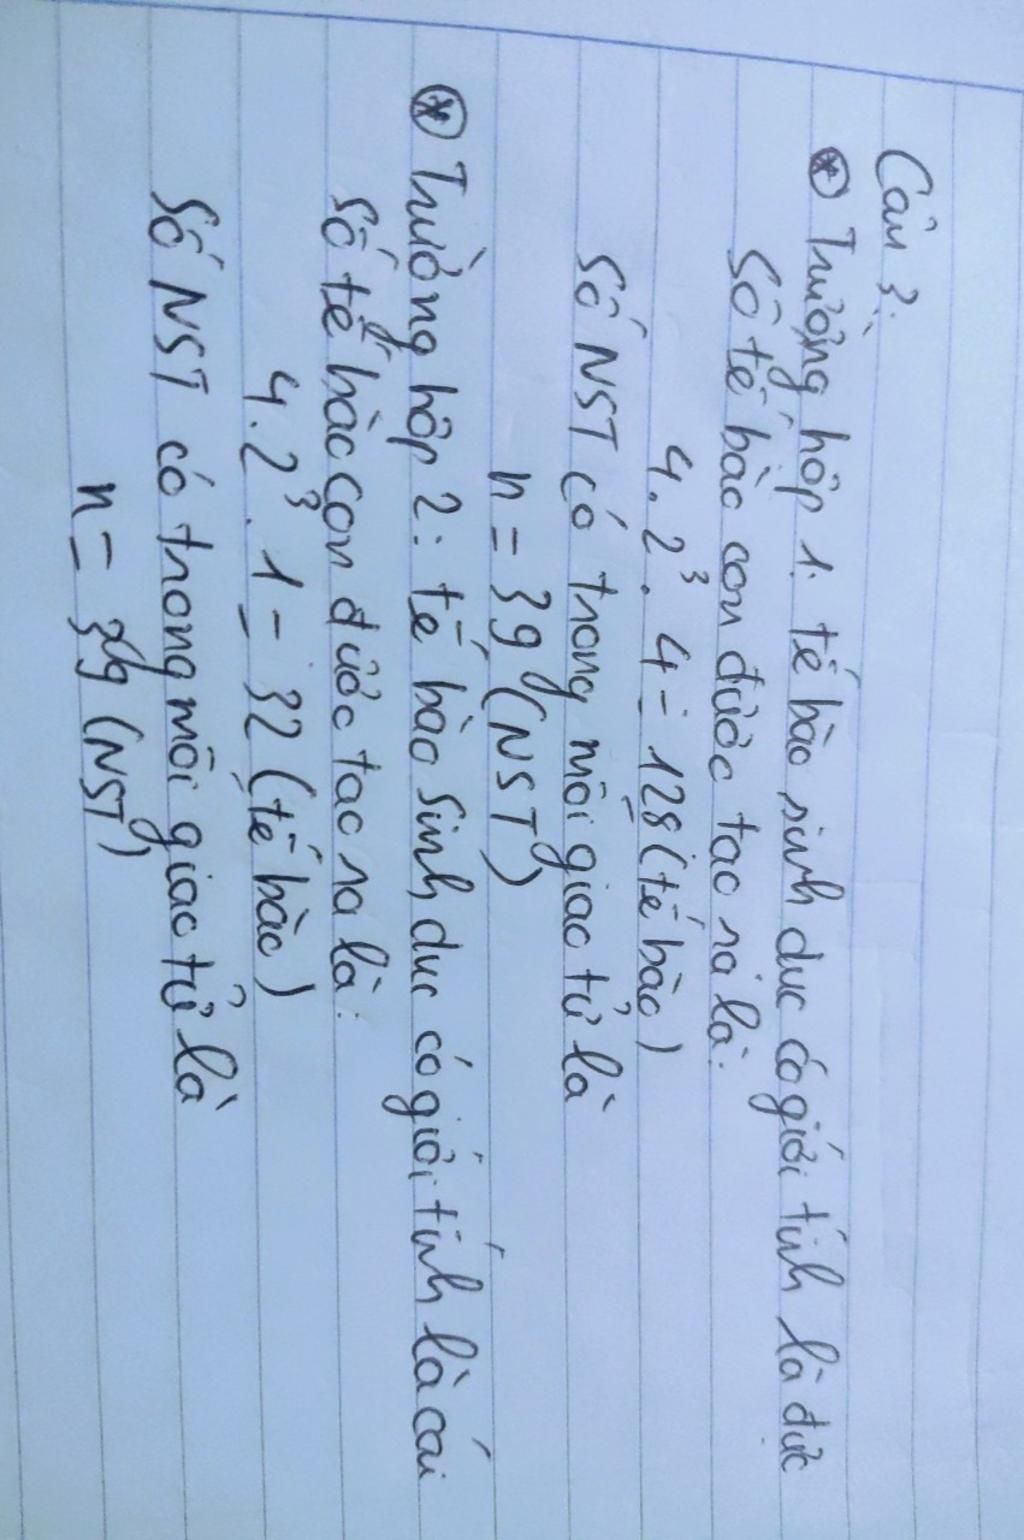 Câu 3:
⊛ Trường hợp 1: tế bào sinh dục có giới tính là đực
Số tế bào con được tạo ra là:
4. 2³. 4 = 128 (tế bào)
Số NST có trong mỗi giao tử là
n = 39 (NST)
⊛ Trường hợp 2: tế bào sinh dục có giới tính là cái
Số tế bào con được tạo ra là:
4. 2³. 1 = 32 (tế bào)
Số NST có trong mỗi giao tử là
n = 39 (NST)